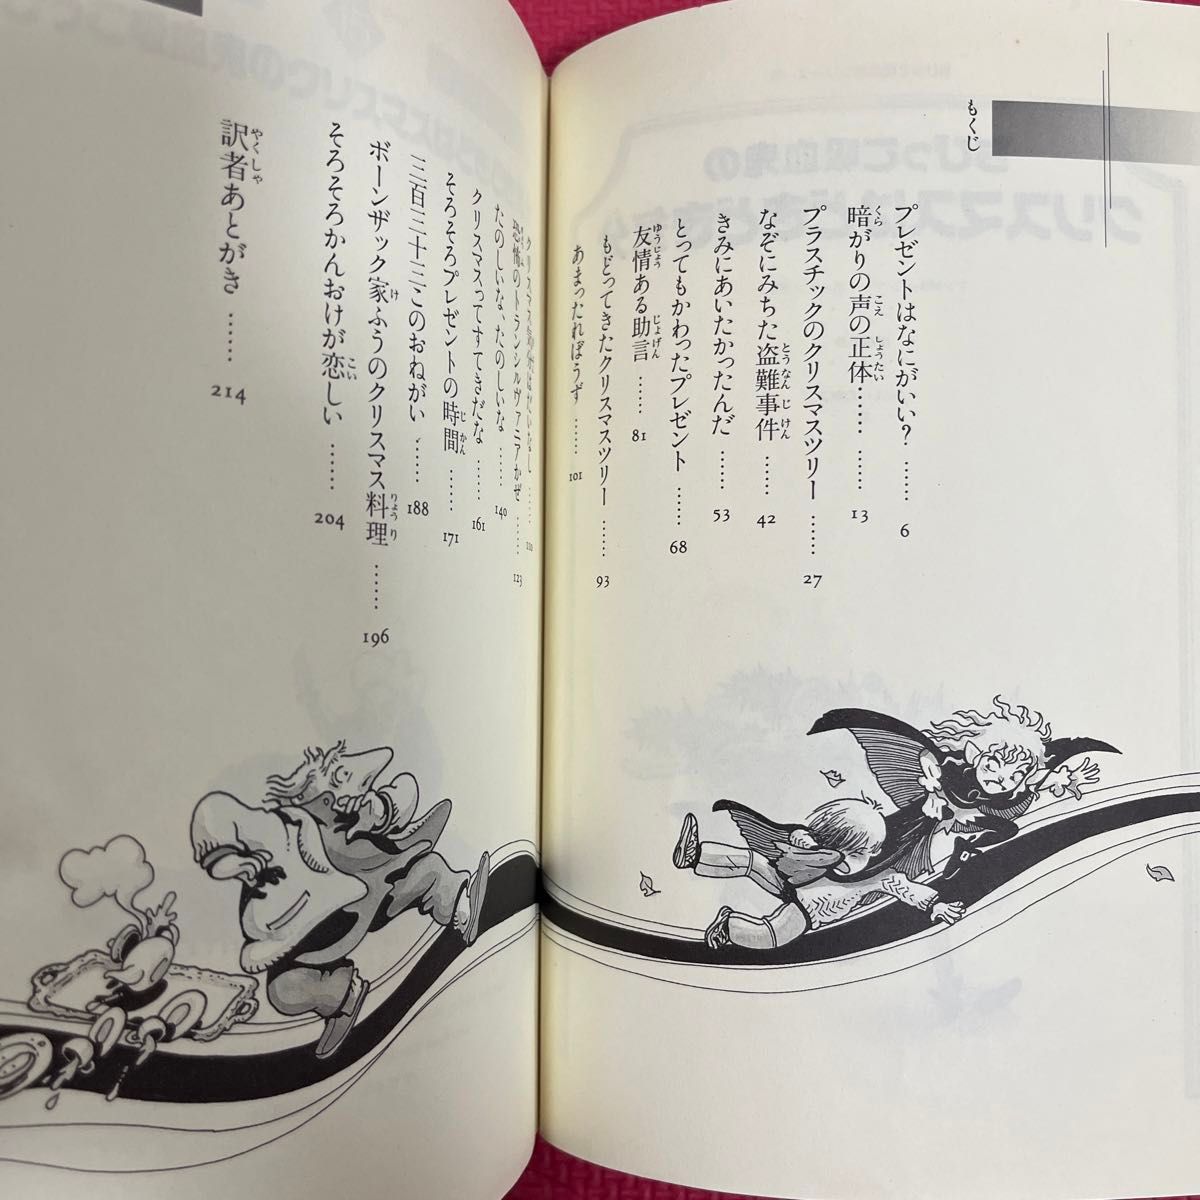 もくじ
プレゼントはなにがいい？ …… 6
暗がりの声の正体 …… 13
くら こえ しょうたい
プラスチックのクリスマスツリー …… 27
なぞにみちた盗難事件 …… 42
とうなん じ けん
きみにあいたかったんだ …… 53
とってもかわったプレゼント …… 68
友情ある助言 …… 81
ゆうじょう じょげん
もどってきたクリスマスツリー …… 93
あまったれぼうず …… 101
クリスマス
恐怖のトランシルヴァニアかぜ …… 123
たのしいな、たのしいな …… 140
クリスマスってすてきだな …… 161
そろそろプレゼントの時間 …… 171
じ かん
三百三十三このおねがい …… 188
ボーンザック家ふうのクリスマス料理 …… 196
け りょう り
そろそろかんおけが恋しい …… 204
こい
訳者あとがき …… 214
やくしゃ